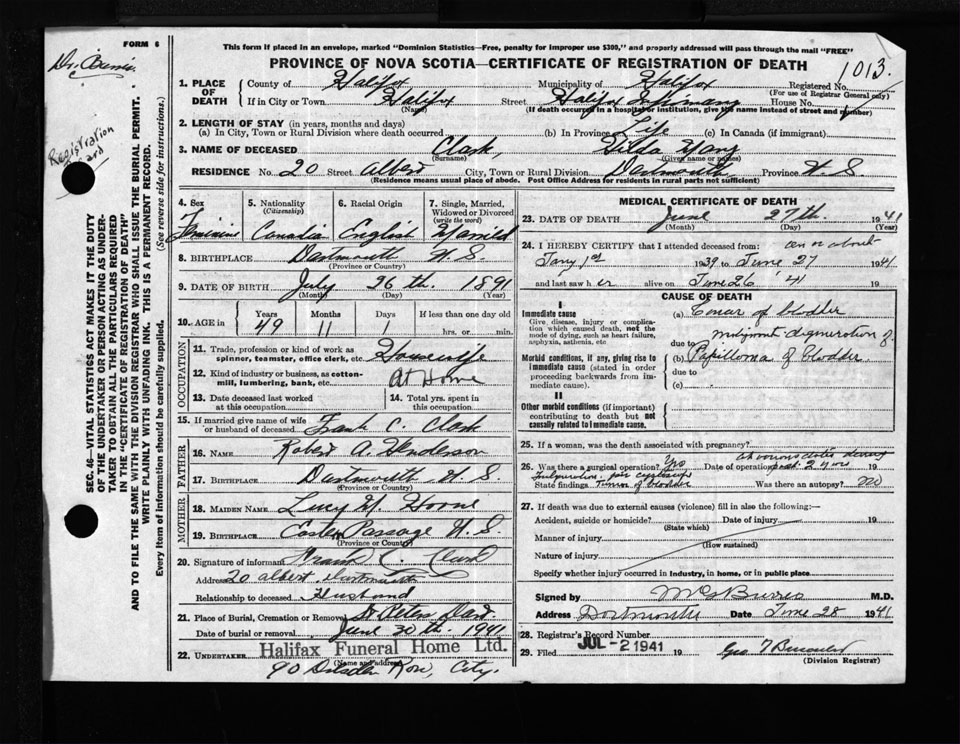 FORM 6
This form if placed in an envelope, marked "Dominion Statistics—Free, penalty for improper use $300," and properly addressed will pass through the mail "FREE"
PROVINCE OF NOVA SCOTIA—CERTIFICATE OF REGISTRATION OF DEATH
1013
Registration Card
SEC. 46—VITAL STATISTICS ACT MAKES IT THE DUTY
OF THE UNDERTAKER OR PERSON ACTING AS UNDER-
TAKER TO OBTAIN ALL THE PARTICULARS REQUIRED
IN THE "CERTIFICATE OF REGISTRATION OF DEATH"
AND TO FILE THE SAME WITH THE DIVISION REGISTRAR WHO SHALL ISSUE THE BURIAL PERMIT.
WRITE PLAINLY WITH UNFADING INK. THIS IS A PERMANENT RECORD.
Every item of information should be carefully supplied. (See reverse side for instructions.)
1. PLACE OF DEATH County of Halifax Municipality of Halifax Registered No.
(For use of Registrar General only)
If in City or Town Halifax Street Halifax Infirmary House No.
(Name) (If death occurred in a hospital or institution, give the name instead of street and number)
2. LENGTH OF STAY (in years, months and days)
(a) In City, Town or Rural Division where death occurred (b) In Province Life (c) In Canada (if immigrant)
3. NAME OF DECEASED Clark, Mary
(Surname) (Given name or names)
RESIDENCE No. 20 Street Albert City, Town or Rural Division Dartmouth Province N.S.
(Residence means usual place of abode. Post Office Address for residents in rural parts not sufficient)
4. Sex 5. Nationality (Citizenship) 6. Racial Origin 7. Single, Married, Widowed or Divorced (write the word)
Feminine Canadian English Married
8. BIRTHPLACE Dartmouth N.S.
(Province or Country)
9. DATE OF BIRTH July 26th. 1891
(Month) (Day) (Year)
10. AGE in Years Months Days If less than one day
49 11 1 hrs. or min.
OCCUPATION
11. Trade, profession or kind of work as spinner, teamster, office clerk, etc. Housewife
12. Kind of industry or business, as cotton-mill, lumbering, bank, etc. At Home
13. Date deceased last worked at this occupation 14. Total yrs. spent in this occupation
15. If married give name of wife or husband of deceased Frank C. Clark
FATHER
16. Name Robert A. Henderson
17. Birthplace Dartmouth N.S.
(Province or Country)
MOTHER
18. Maiden Name Lucy Horne
19. Birthplace Eastern Passage N.S
(Province or Country)
20. Signature of informant Frank C Clark
Address 20 Albert. Dartmouth
Relationship to deceased Husband
21. Place of Burial, Cremation or Removal
Date of burial or removal June 30th, 1941
22. UNDERTAKER Halifax Funeral Home Ltd.
(Name and Address)
90 Row, City.
MEDICAL CERTIFICATE OF DEATH
23. DATE OF DEATH June 27th. 1941
(Month) (Day) (Year)
24. I HEREBY CERTIFY that I attended deceased from on or about
Jany 1st 1939 to June 27 1941
and last saw her alive on June 26 '41 19
CAUSE OF DEATH
I
Immediate cause
Give disease, injury or complication which caused death, not the mode of dying, such as heart failure, asphyxia, asthenia, etc
(a) Cancer of bladder
due to malignant degeneration of
Morbid conditions, if any, giving rise to immediate cause (stated in order proceeding backwards from immediate cause).
(b) Papilloma of bladder
due to
(c)
II
Other morbid conditions (if important) contributing to death but not causally related to immediate cause.
25. If a woman, was the death associated with pregnancy?
26. Was there a surgical operation? Yes Date of operation at various dates during past 2 years 19
State findings Tumor of bladder Was there an autopsy? no
27. If death was due to external causes (violence) fill in also the following:—
Accident, suicide or homicide? Date of injury 19
(State which)
Manner of injury
(How sustained)
Nature of injury
Specify whether injury occurred in industry, in home, or in public place
Signed by M.D.
Address Dartmouth Date June 28 1941
28. Registrar's Record Number
29. Filed JUL - 2 1941 19
(Division Registrar)